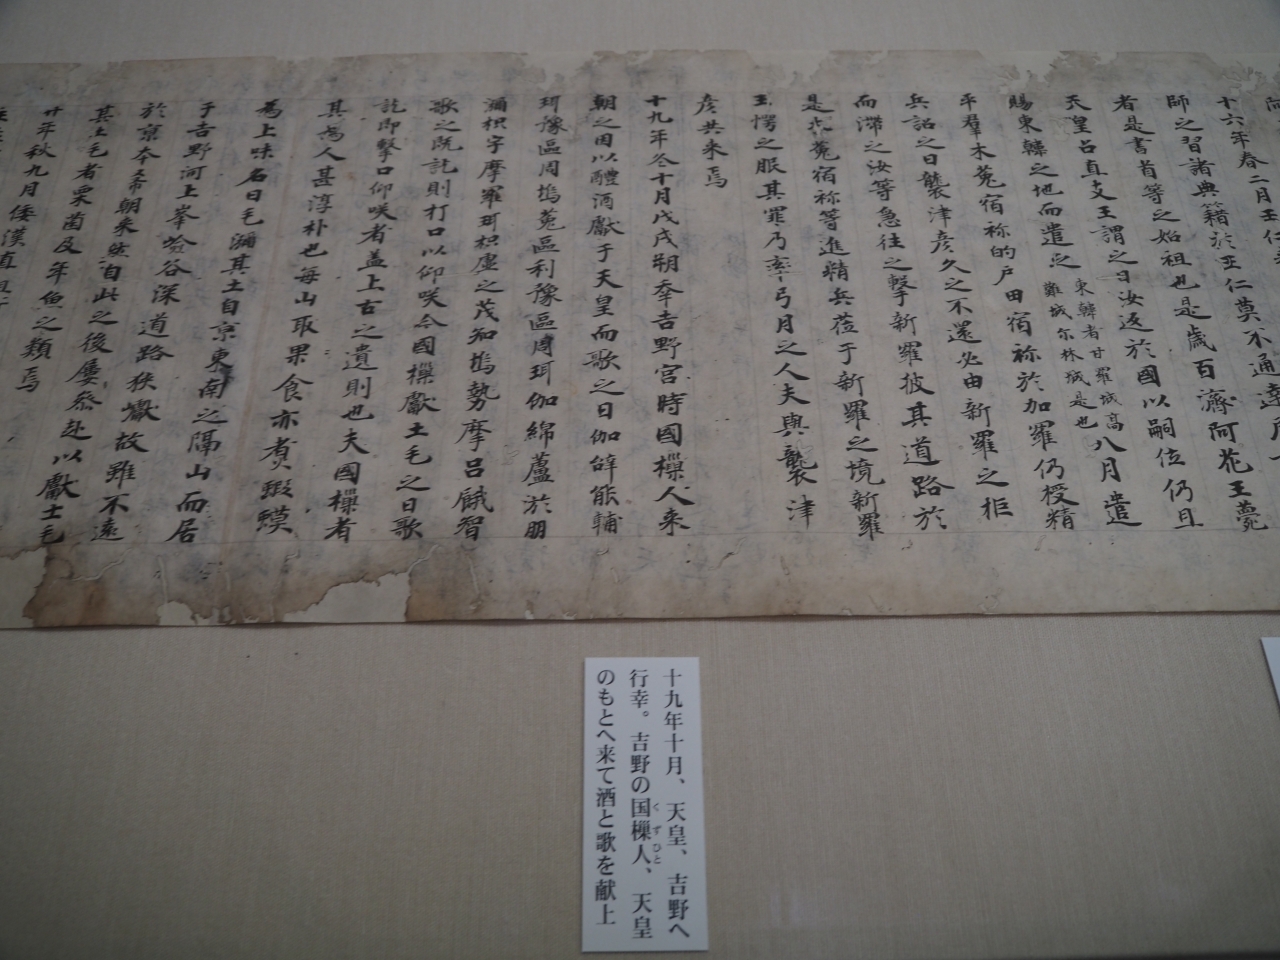 十六年春二月王仁来
師之習諸典籍於王仁莫不通達
者是書首等之始祖也是歳百濟阿花王薨
天皇召直支王謂之曰汝返於國以嗣位仍且
賜東韓之地而遣之
東韓者甘羅城高
難城尓林城是也
八月遣
平羣木菟宿祢的戸田宿祢於加羅仍授精
兵詔之曰襲津彦久之不還必由新羅之拒
而滞之汝等急往之撃新羅披其道路於
是木菟宿祢等進精兵莅于新羅之境新羅
王愕之服其罪乃率弓月之人夫與襲津
彦共来焉
十九年冬十月戊戌朔幸吉野宮時國樔人来
朝之因以醴酒獻于天皇而歌之曰伽辝能輔
珥豫區周塢菟區利豫區周珥伽綿蘆淤朋
瀰枳宇摩羅珥枳虚之茂知塢勢摩呂餓智
歌之既訖則打口以仰咲今國樔獻土毛之日歌
訖即撃口仰咲者盖上古之遺則也夫國樔者
其為人甚淳朴也毎山取果食亦煮蝦蟆
為上味名曰毛瀰其土自京東南之隔山而居
于吉野河上峯嶮谷深道路狭巘故雖不遠
於京本希朝来然自此之後屡参赴以獻土毛
其土毛者栗菌及年魚之類焉
廿年秋九月倭漢直祖
十九年十月、天皇、吉野へ
行幸。吉野の国樔人、天皇
くずひと
のもとへ来て酒と歌を献上